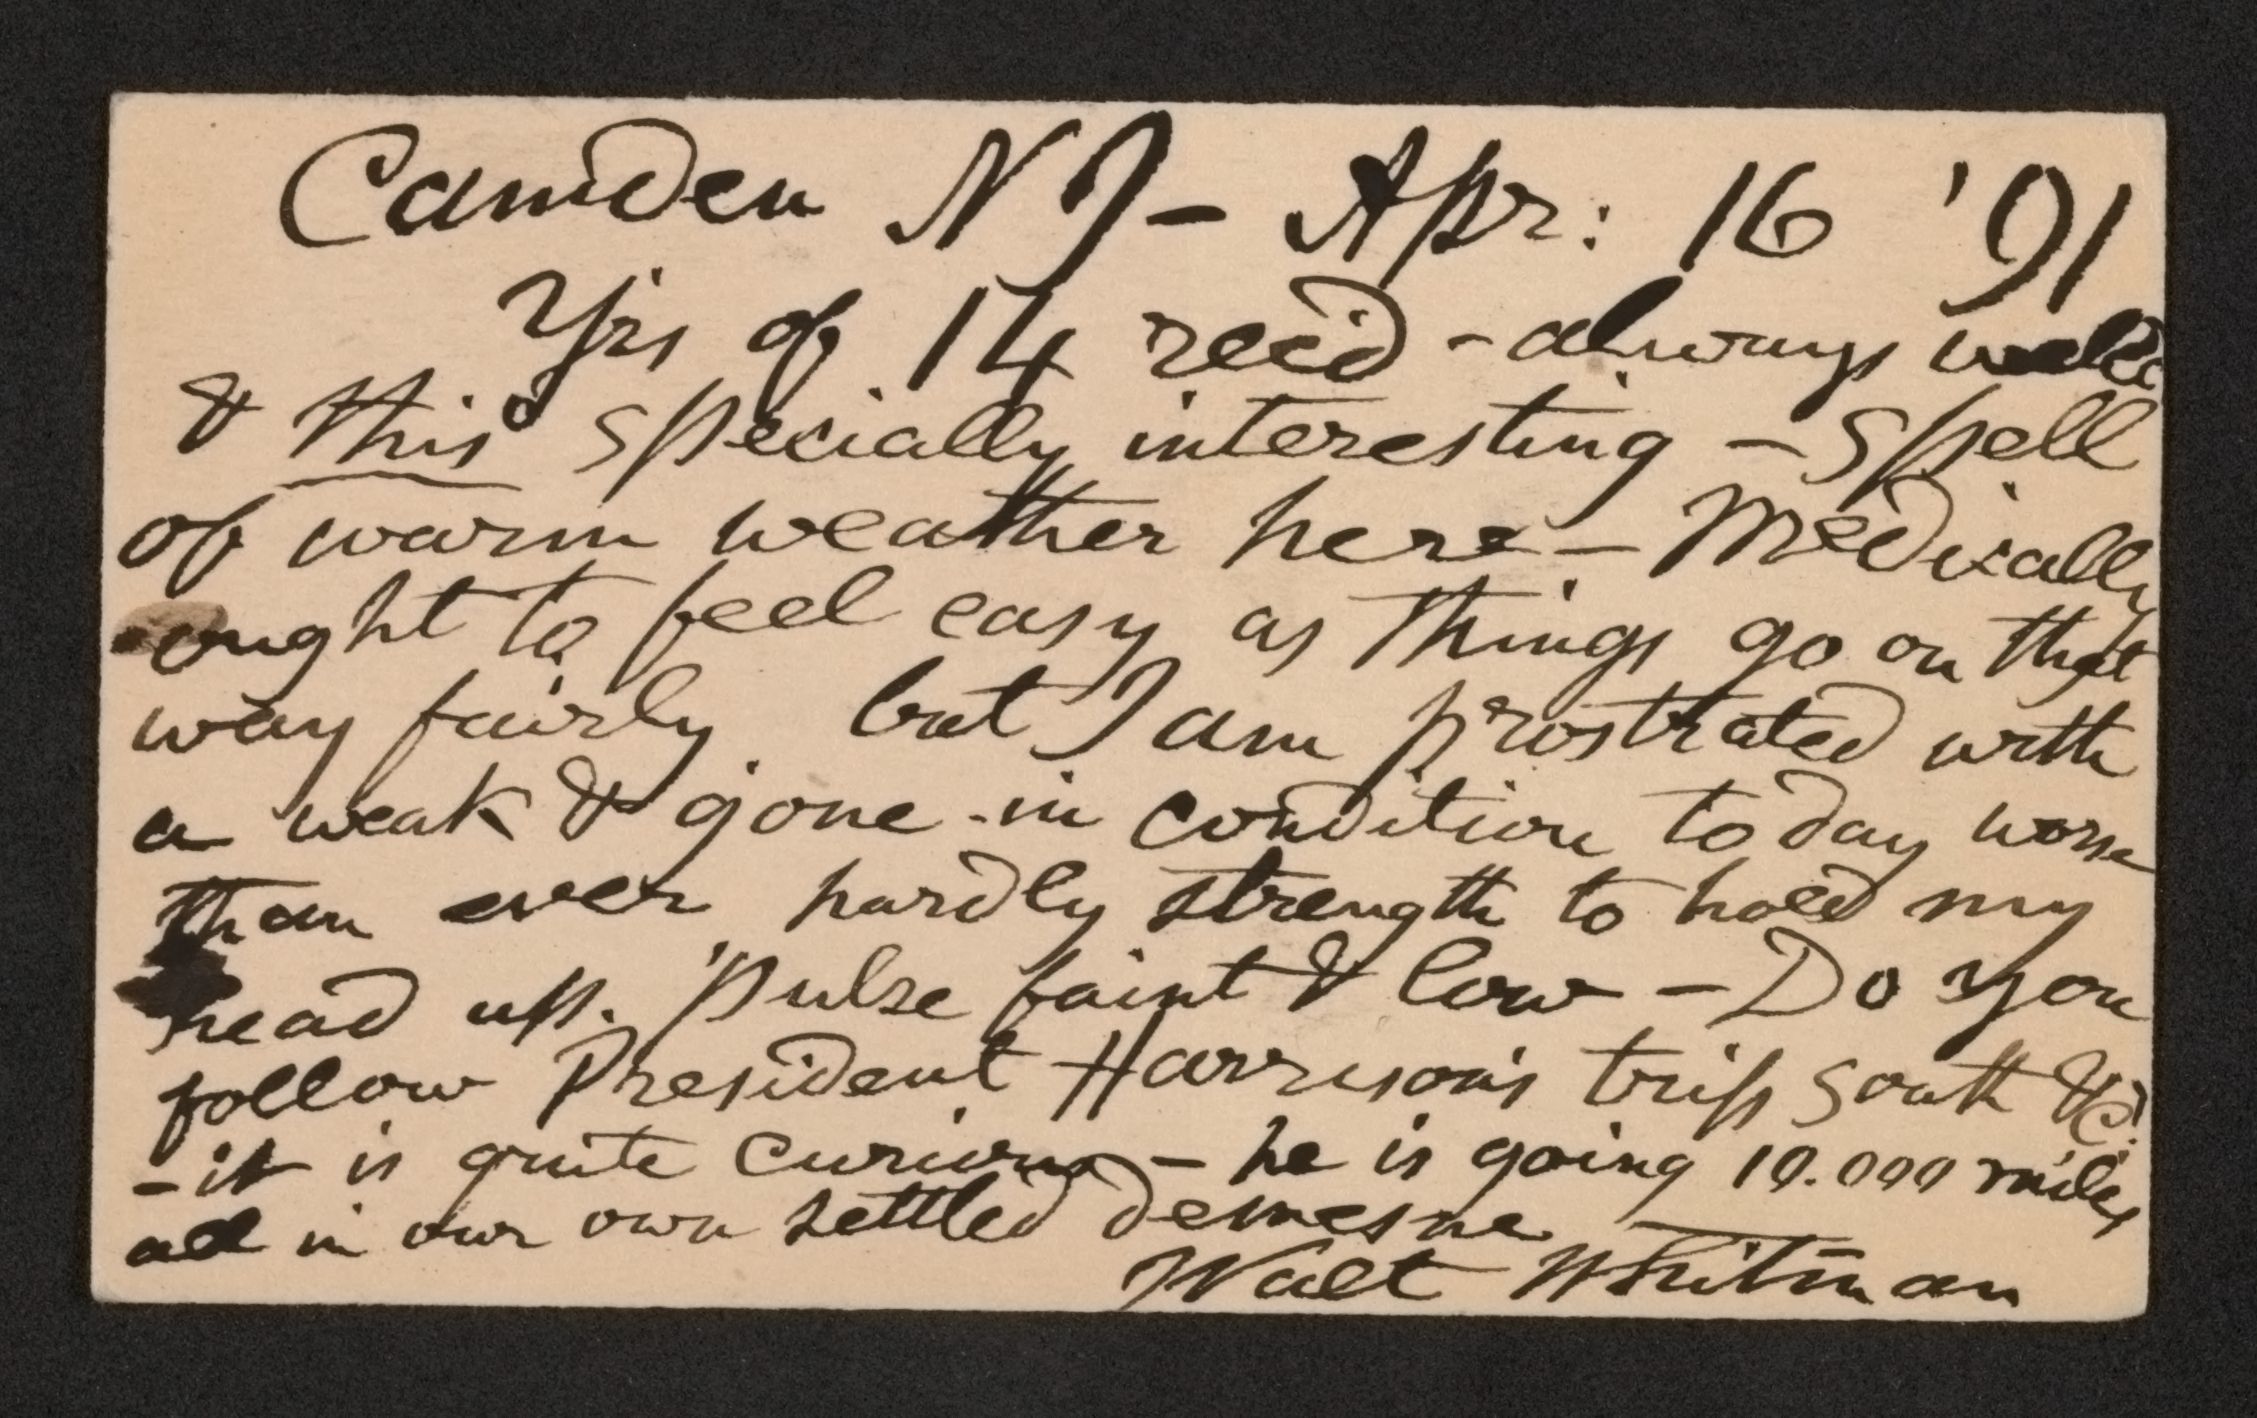 Camden N J – Apr: 16 '91
Yrs of 14 rec'd – always welc
& this specially interesting – Spell
of warm weather here – Medically
ought to feel easy as things go on that
way fairly but I am prostrated with
a weak & gone-in condition to day worse
than ever hardly strength to hold my
head up. pulse faint & low – Do you
follow President Harrison's trip south &c:
– it is quite curious – he is going 10.000 miles
all in our own settled demesne –
Walt Whitman